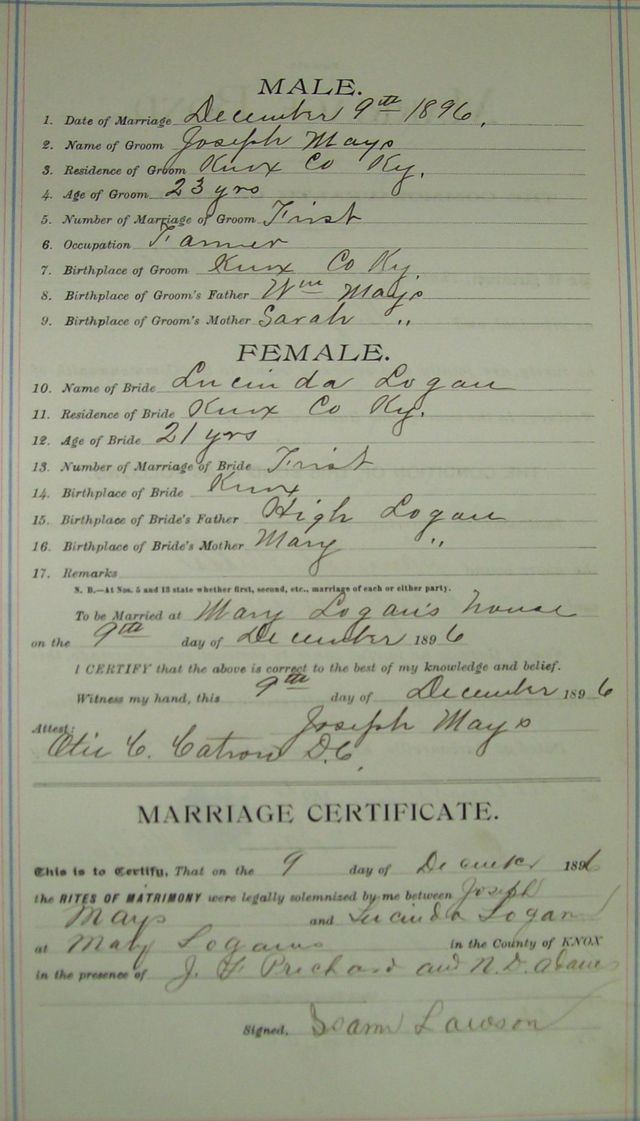 MALE.
1. Date of Marriage December 9th 1896.
2. Name of Groom Joseph Mays
3. Residence of Groom Knox Co Ky.
4. Age of Groom 23 yrs
5. Number of Marriage of Groom First
6. Occupation Farmer
7. Birthplace of Groom Knox Co Ky.
8. Birthplace of Groom's Father Wm Mays
9. Birthplace of Groom's Mother Sarah "
FEMALE.
10. Name of Bride Lucinda Logan
11. Residence of Bride Knox Co Ky.
12. Age of Bride 21 yrs
13. Number of Marriage of Bride First
14. Birthplace of Bride Knox
15. Birthplace of Bride's Father High Logan
16. Birthplace of Bride's Mother Mary "
17. Remarks
N. B.—At Nos. 5 and 13 state whether first, second, etc., marriage of each or either party.
To be Married at Mary Logan's house
on the 9th day of December 1896
I CERTIFY that the above is correct to the best of my knowledge and belief.
Witness my hand, this 9th day of December 1896
Joseph Mays
Attest:
C. Catron D.C.
MARRIAGE CERTIFICATE.
This is to Certify, That on the 9 day of December 1896
the RITES OF MATRIMONY were legally solemnized by me between Joseph
Mays and Lucinda Logan
at Mary Logans in the County of KNOX
in the presence of J. F. Prichard and N. D. Adams
Signed, Lawson